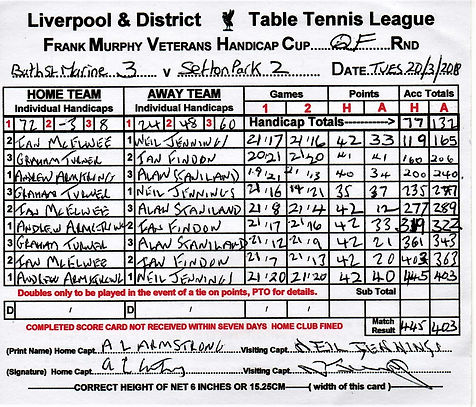 Liverpool & District Table Tennis League
Frank Murphy Veterans Handicap Cup QF Rnd
Bath St Marine 3 v Sefton Park 2 Date Tues 20/3/2018
HOME TEAM AWAY TEAM Games Points Acc Totals
Individual Handicaps Individual Handicaps 1 2 H A H A
1 72 2 -3 3 8 1 24 2 48 3 60 Handicap Totals 77 132
2 Ian McElwee 2 Neil Jennings 21/17 21/16 42 33 119 165
3 Graham Turner 2 Ian Findon 20/21 21/20 41 41 160 206
1 Andrew Armstrong 3 Alan Staniland 19/21 21/13 40 34 200 240
3 Graham Turner 1 Neil Jennings 21/16 14/21 35 37 235 287
2 Ian McElwee 3 Alan Staniland 21/8 21/4 42 12 277 289
1 Andrew Armstrong 2 Ian Findon 21/17 21/16 42 33 319 322
3 Graham Turner 3 Alan Staniland 21/12 21/9 42 21 361 343
2 Ian McElwee 2 Ian Findon 21/7 21/13 42 20 403 363
1 Andrew Armstrong 1 Neil Jennings 21/20 21/20 42 40 445 403
Doubles only to be played in the event of a tie on points, PTO for details. Sub Total
D / D / / /
COMPLETED SCORE CARD NOT RECEIVED WITHIN SEVEN DAYS HOME CLUB FINED Match Result 445 403
(Print Name) Home Capt. A L ARMSTRONG Visiting Capt. NEIL JENNINGS
(Signature) Home Capt. Visiting Capt.
CORRECT HEIGHT OF NET 6 INCHES OR 15.25CM (width of this card)